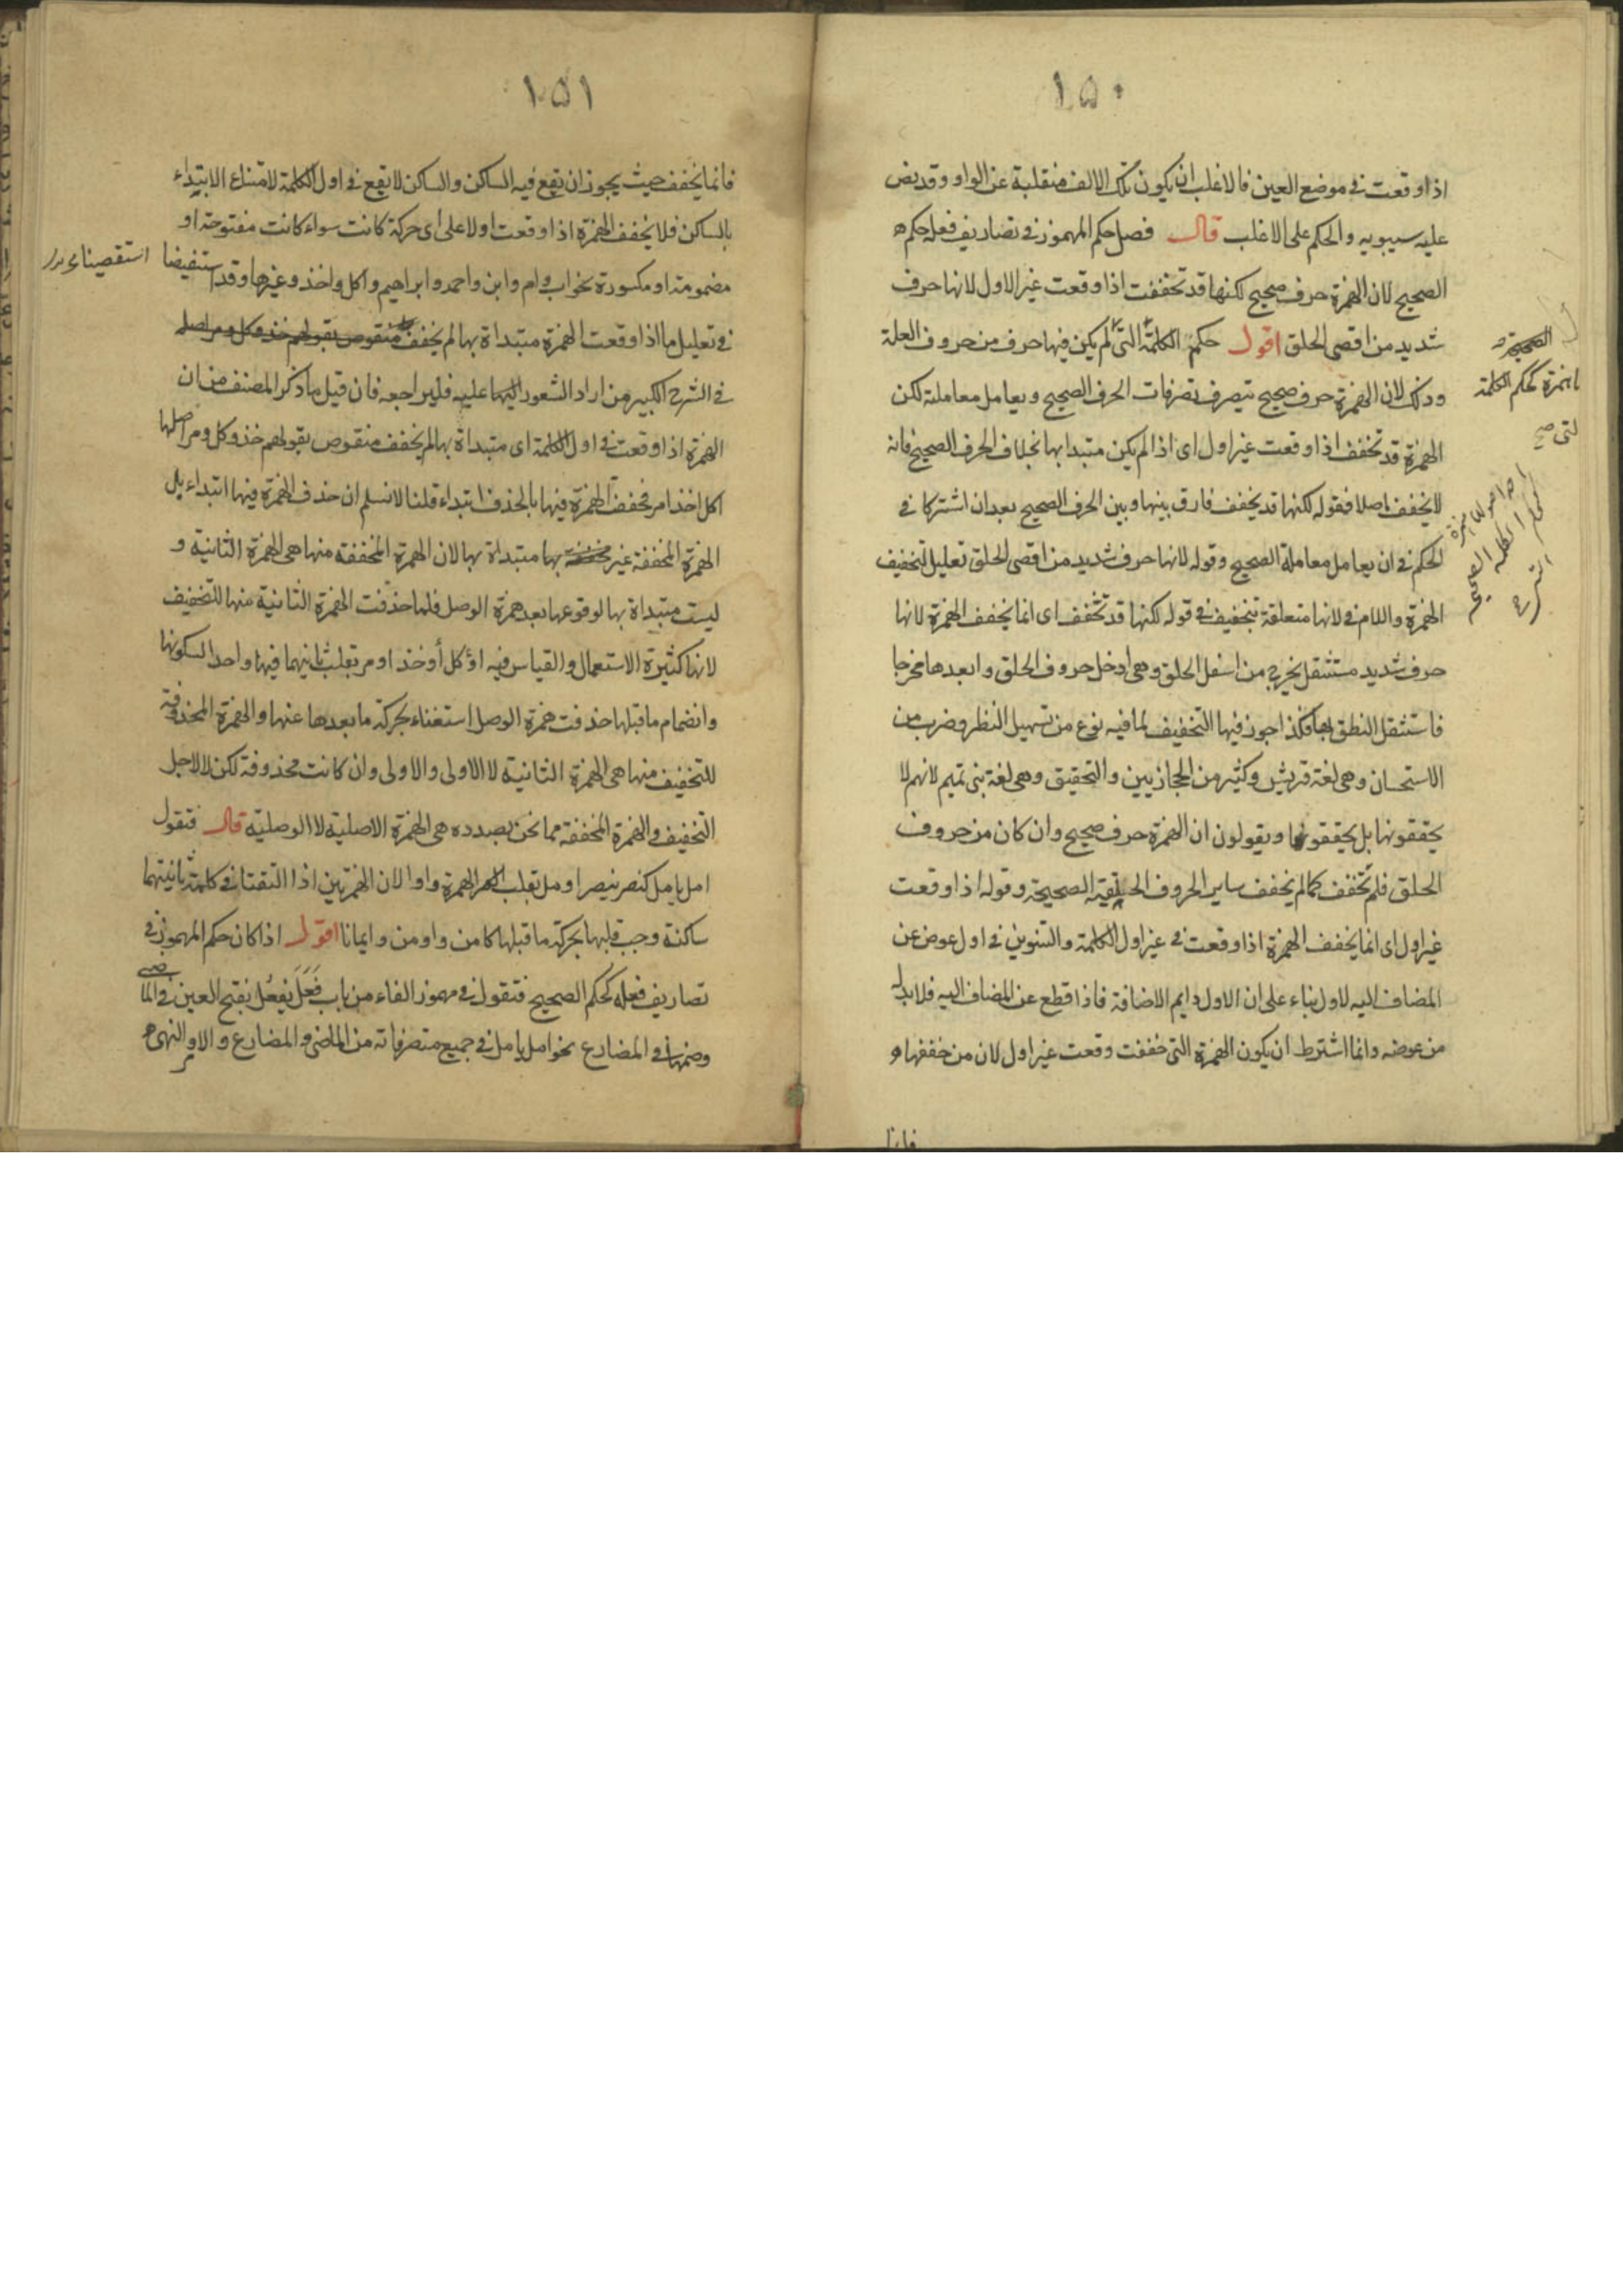 ١٥٠
اذا وقعت فى موضع العين فالاغلب ان يكون تلك الالف منقلبة عن الواو وقد نص
عليه سيبويه والحكم على الاغلب قال فصل حكم المهموز فى تصاريف فعله حكم
الصحيح لان الهمزة حرف صحيح لكنها قد تخففت اذا وقعت غير الاول لانها حرف
شديد من اقصى الحلق اقول حكم الكلمة التى لم يكن فيها حرف من حروف العلة
وذلك لان الهمزة حرف صحيح يتصرف تصرفات الحرف الصحيح ويعامل معاملته لكن
الهمزة قد تخفف اذا وقعت غير اول اى اذا لم يكن مبتدا بها بخلاف الحرف الصحيح فانه
لا يخفف اصلا فقوله لكنها قد يخفف فارق بينها وبين الحرف الصحيح بعد ان اشتركا فى
الحكم فى ان يعامل معاملة الصحيح وقوله لانها حرف شديد من اقصى الحلق تعليل لتخفيف
الهمزة واللام فى لانها متعلقة بتخفيف فى قوله لكنها قد تخفف اى انما يخفف الهمزة لانها
حرف شديد مستثقل يخرج من اسفل الحلق وهى ادخل حروف الحلق وابعدها مخرجا
فاستثقل النطق بها فلذا جوز فيها التخفيف لما فيه نوع من تسهيل النظر وضرب من
الاستحسان وهى لغة قريش وكثير من الحجازيين والتحقيق وهى لغة بنى تميم لانهم لا
يخففونها بل يحققونها ويقولون ان الهمزة حرف صحيح وان كان من حروف
الحلق فلم تخفف كما لم يخفف ساير الحروف الحلقية الصحيحة وقوله اذا وقعت
غير اول اى انما يخفف الهمزة اذا وقعت فى غير اول الكلمة والتنوين فى اول عوض عن
المضاف اليه لاول بناء على ان الاول دايم الاضافة فاذا قطع عن المضاف اليه فلابد له
من عوضه وانما اشترط ان يكون الهمزة التى خففت وقعت غير اول لان من خففها
فانما
الصحيح و
بالهمزة كحكم الكلمة
التى صح
١٥١
فانما يخفف حيث يجوز ان يقع فيه الساكن والساكن لا يقع فى اول الكلمة لامتناع الابتداء
بالساكن فلا يخفف الهمزة اذا وقعت اولا على اى حركة كانت سواء كانت مفتوحة او
مضمومة او مكسورة نحو اب وام وابن واحمد وابراهيم واكل واخذ وغيرها وقد استقصينا
فى تعليل ما اذا وقعت الهمزة مبتداة بها لم يخفف منقوض بقولهم خذ وكل ومر اصله
فى الشرح الكبير من اراد الشعور اليها عليه فليراجعه فان قيل ما ذكر المصنف من ان
الهمزة اذا وقعت فى اول الكلمة اى مبتداة بها لم يخفف منقوص بقولهم خذ وكل ومر اصلها
اكل اخذ امر فخففت الهمزة فيها بالحذف ابتداء قلنا لا نسلم ان حذف الهمزة فيها ابتداء بل
الهمزة المخففة غير بها مبتداة بها لان الهمزة المخففة منها هى الهمزة الثانية و
ليست مبتداة بها لوقوعها بعد همزة الوصل فلما حذفت الهمزة الثانية منها للتخفيف
لانها كثيرة الاستعمال والقياس فيه اؤكل أوخذ اومر بقلب ثانيهما فيها واحدا لسكونها
وانضمام ما قبلها حذفت همزة الوصل استغناء بحركة ما بعدها عنها والهمزة المحذوفة
للتخفيف منها هى الهمزة الثانية لا الاولى والاولى وان كانت محذوفة لكن لا لاجل
التخفيف والهمزة المخففة مما نحن بصدده هى الهمزة الاصلية لا الوصلية قال فتقول
امل يامل كنصر ينصر اومل بقلب الهمزة واوا لان الهمزتين اذا التقتا فى كلمة ثانيتهما
ساكنة وجب قلبها بحركة ما قبلها كامن واومن وايمانا اقول اذا كان حكم المهموز فى
تصاريف فعله كحكم الصحيح فتقول فى مهموز الفاء من باب فَعَلَ يَفعُل بفتح العين فى الماضى
وضمها فى المضارع نحو امل يامل فى جميع متصرفاته من الماضى والمضارع والامر والنهى
استقصينا